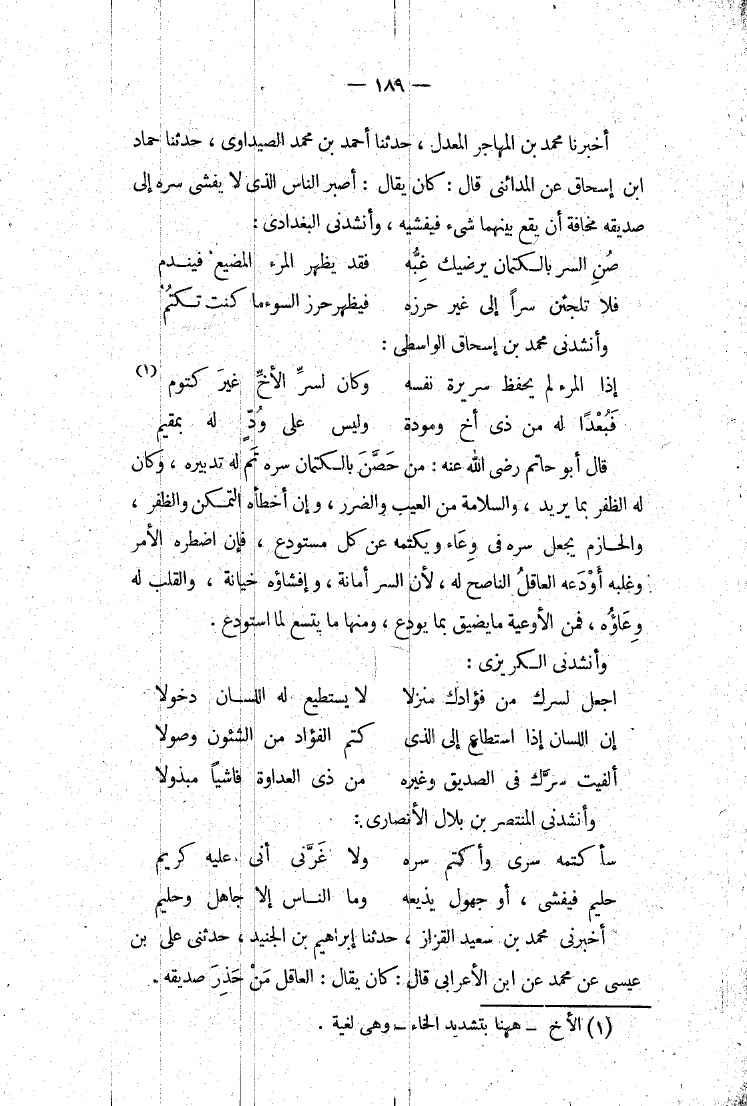 — ١٨٩ —
أخبرنا محمد بن المهاجر المعدل ، حدثنا أحمد بن محمد الصيداوى ، حدثنا حماد
ابن إسحاق عن المدائنى قال : كان يقال : أصبر الناس الذى لا يفشى سره إلى
صديقه مخافة أن يقع بينهما شىء فيفشيه ، وأنشدنى البغدادى :
صُنِ السر بالكتمان يرضيك غِبُّه فقد يظهر المرء المضيع فيندم
فلا تلجئن سراً إلى غير حرزه فيظهر حرز السوء ما كنت تكتُمُ
وأنشدنى محمد بن إسحاق الواسطى :
إذا المرء لم يحفظ سريرة نفسه وكان لسرِّ الأخِّ غيرَ كتوم (١)
فَبُعْدًا له من ذى أخ ومودة وليس على وُدٍّ له بمقيم
قال أبو حاتم رضى الله عنه : من حَصَّنَ بالكتمان سره تمّ له تدبيره ، وكان
له الظفر بما يريد ، والسلامة من العيب والضرر ، وإن أخطأه التمكن والظفر ،
والحازم يجعل سره فى وِعَاء ويكتمه عن كل مستودع ، فإن اضطره الأمر
وغلبه أَوْدَعه العاقلُ الناصح له ، لأن السر أمانة ، وإفشاؤه خيانة ، والقلب له
وِعَاؤُه ، فمن الأوعية مايضيق بما يودع ، ومنها ما يتسع لما استودع .
وأنشدنى الكريزى :
اجعل لسرك من فؤادك منزلا لا يستطيع له اللسان دخولا
إن اللسان إذا استطاع إلى الذى كتم الفؤاد من الشئون وصولا
ألفيت سرَّك فى الصديق وغيره من ذى العداوة فاشياً مبذولا
وأنشدنى المنتصر بن بلال الأنصارى :
سأكتمه سرى وأكتم سره ولا غَرَّنى أنى عليه كريم
حليم فيفشى ، أو جهول يذيعه وما الناس إلا جاهل وحليم
أخبرنى محمد بن سعيد القزاز ، حدثنا إبراهيم بن الجنيد ، حدثنى على بن
عيسى عن محمد عن ابن الأعرابى قال : كان يقال : العاقل مَنْ حَذِرَ صديقه .
(١) الأخ – ههنا بتشديد الخاء – وهى لغية .